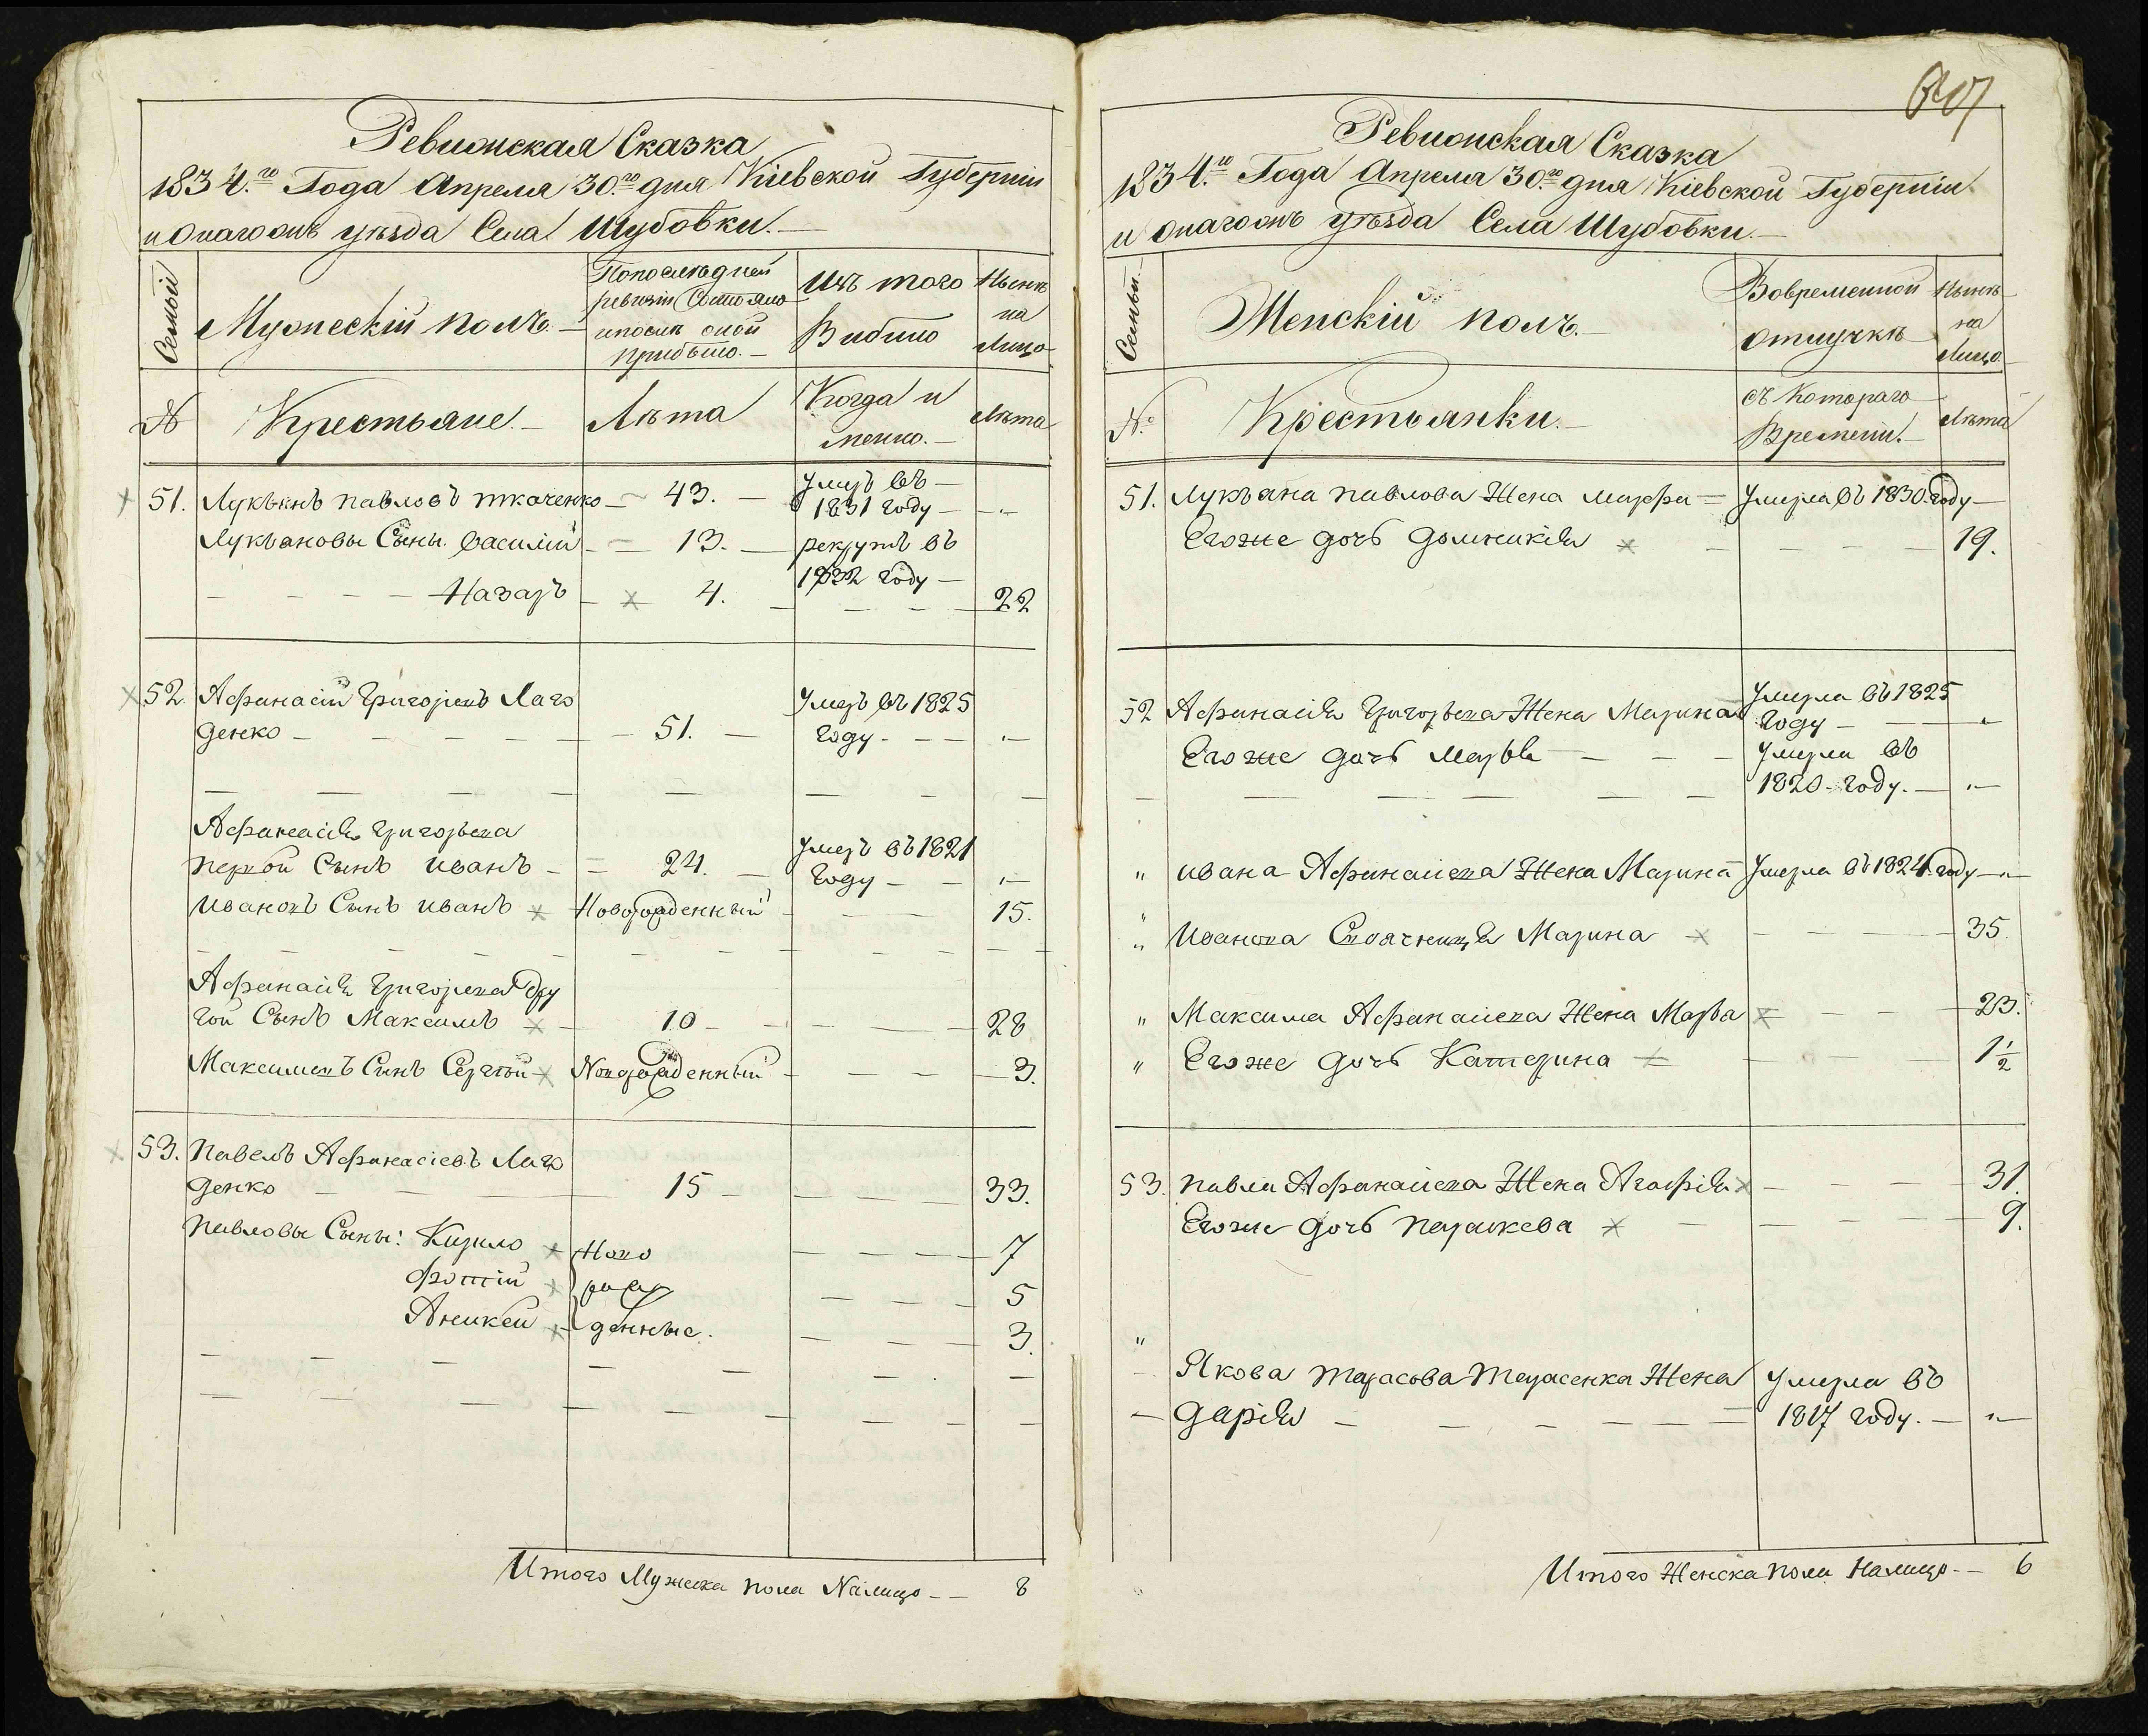 Ревижская Сказка
1834.го Года Апреля 30.го дня Кіевской Губерніи
и онагожъ уѣзда Села Шубовки.
Семьи
Мужескій полъ.
По последней
ревизіи Состояло
и после оной
прибыло.
Изъ того
Выбыло
Нынѣ
на
Лицо
№
Крестьяне.
Лѣта
Когда и
менно.
Лѣта
51. Лукьянъ павловъ ткаченко 43. Умеръ въ
1831 году
Лукьяновы Сыны. василій 13. рекрутъ въ
1832 году
Назаръ 4. 22
52 Афанасій Григорьевъ Лаго
денко 51. Умеръ въ 1825
году
Афанасія Григорьева
первой Сынъ иванъ 24. Умеръ въ 1821
году
ивановъ Сынъ иванъ Новорожденный 15.
Афанасія Григорьева дру
гой Сынъ Максимъ 10 28
Максимовъ Сынъ Сергѣй Новорожденный 3.
53. Павелъ Афанасіевъ Лаго
денко 15 33.
Павловы Сыны: Кирило Ново 7
Фотій рож 5
Аникей денные. 3.
Итого Мужеска пола Налицо 8
607
Ревижская Сказка
1834.го Года Апреля 30.го дня Кіевской Губерніи
и онагожъ уѣзда Села Шубовки.
Семьи
Женскій полъ.
Вовременной
отлучкѣ
Нынѣ
на
Лицо.
№.
Крестьянки.
съ Котораго
Времени.
Лѣта
51. Лукьяна павлова Жена марфа Умерла въ 1830. году
Егоже дочь домникія 19.
52 Афанасія Григорьева Жена Марина Умерла въ 1825
году
Егоже дочь марья Умерла въ
1820 году.
" ивана Афанасіева Жена Марина Умерла въ 1824 году
" Иванова Своячница Марина 35.
" Максима Афанасіева Жена Марья 23.
" Егоже дочь Катерина 1 1/2
53. павла Афанасіева Жена Агафія 31.
Егоже дочь параскева 9.
"
Якова тарасова тарасенка Жена Умерла въ
дарія 1817 году.
Итого Женска пола Налицо 6